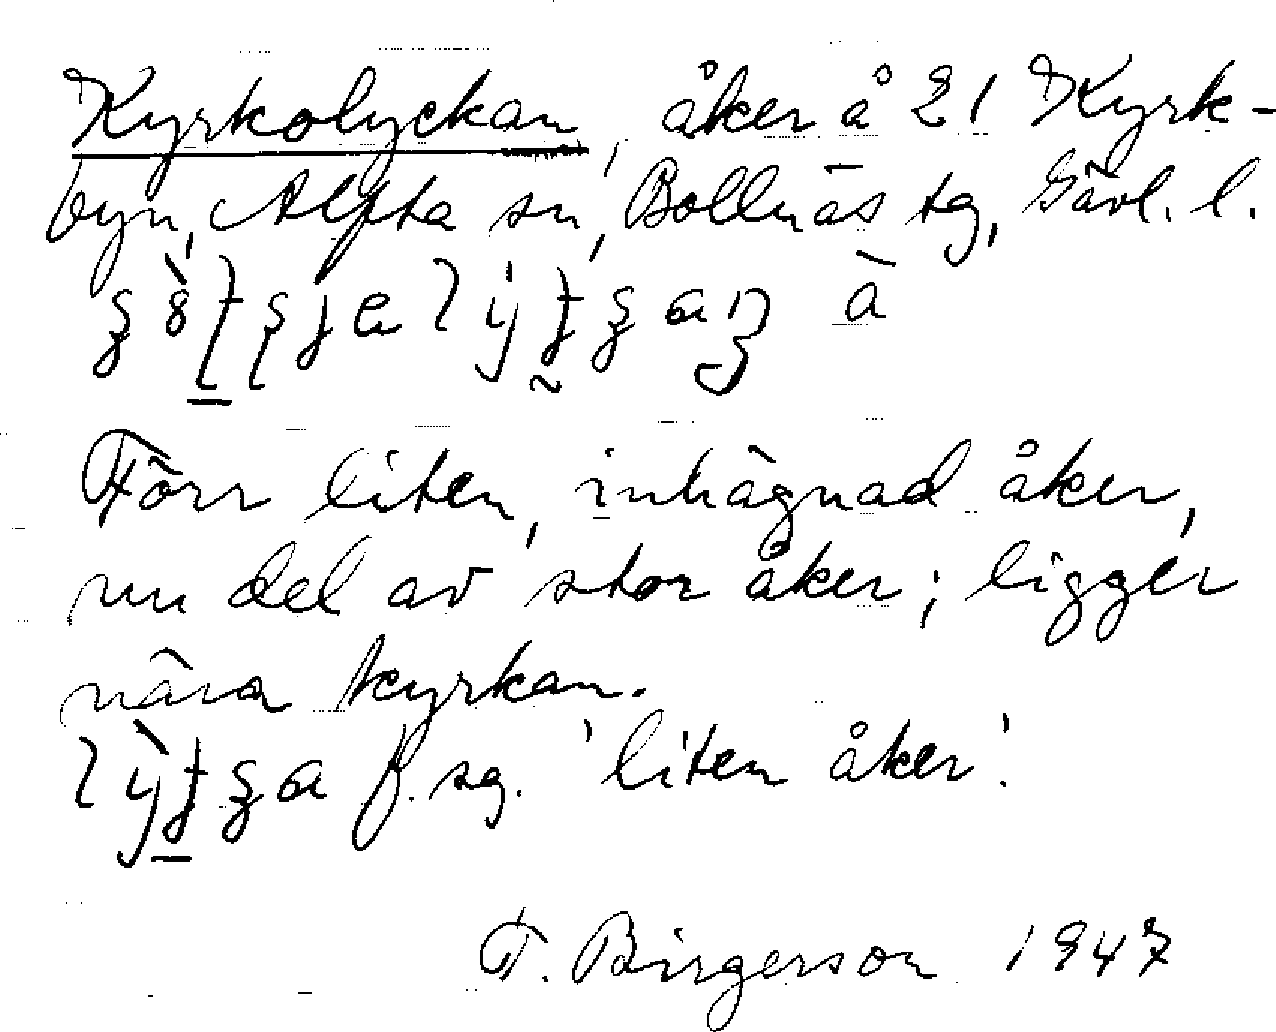 Kyrkolyckan, åker å 21 Kyrk-
byn, Alfta sn, Bollnäs tg, Gävl. l.
à
Förr liten, inhägnad åker,
nu del av stor åker; ligger
nära kyrkan.
f. sg. 'liten åker'.
T. Birgerson 1947